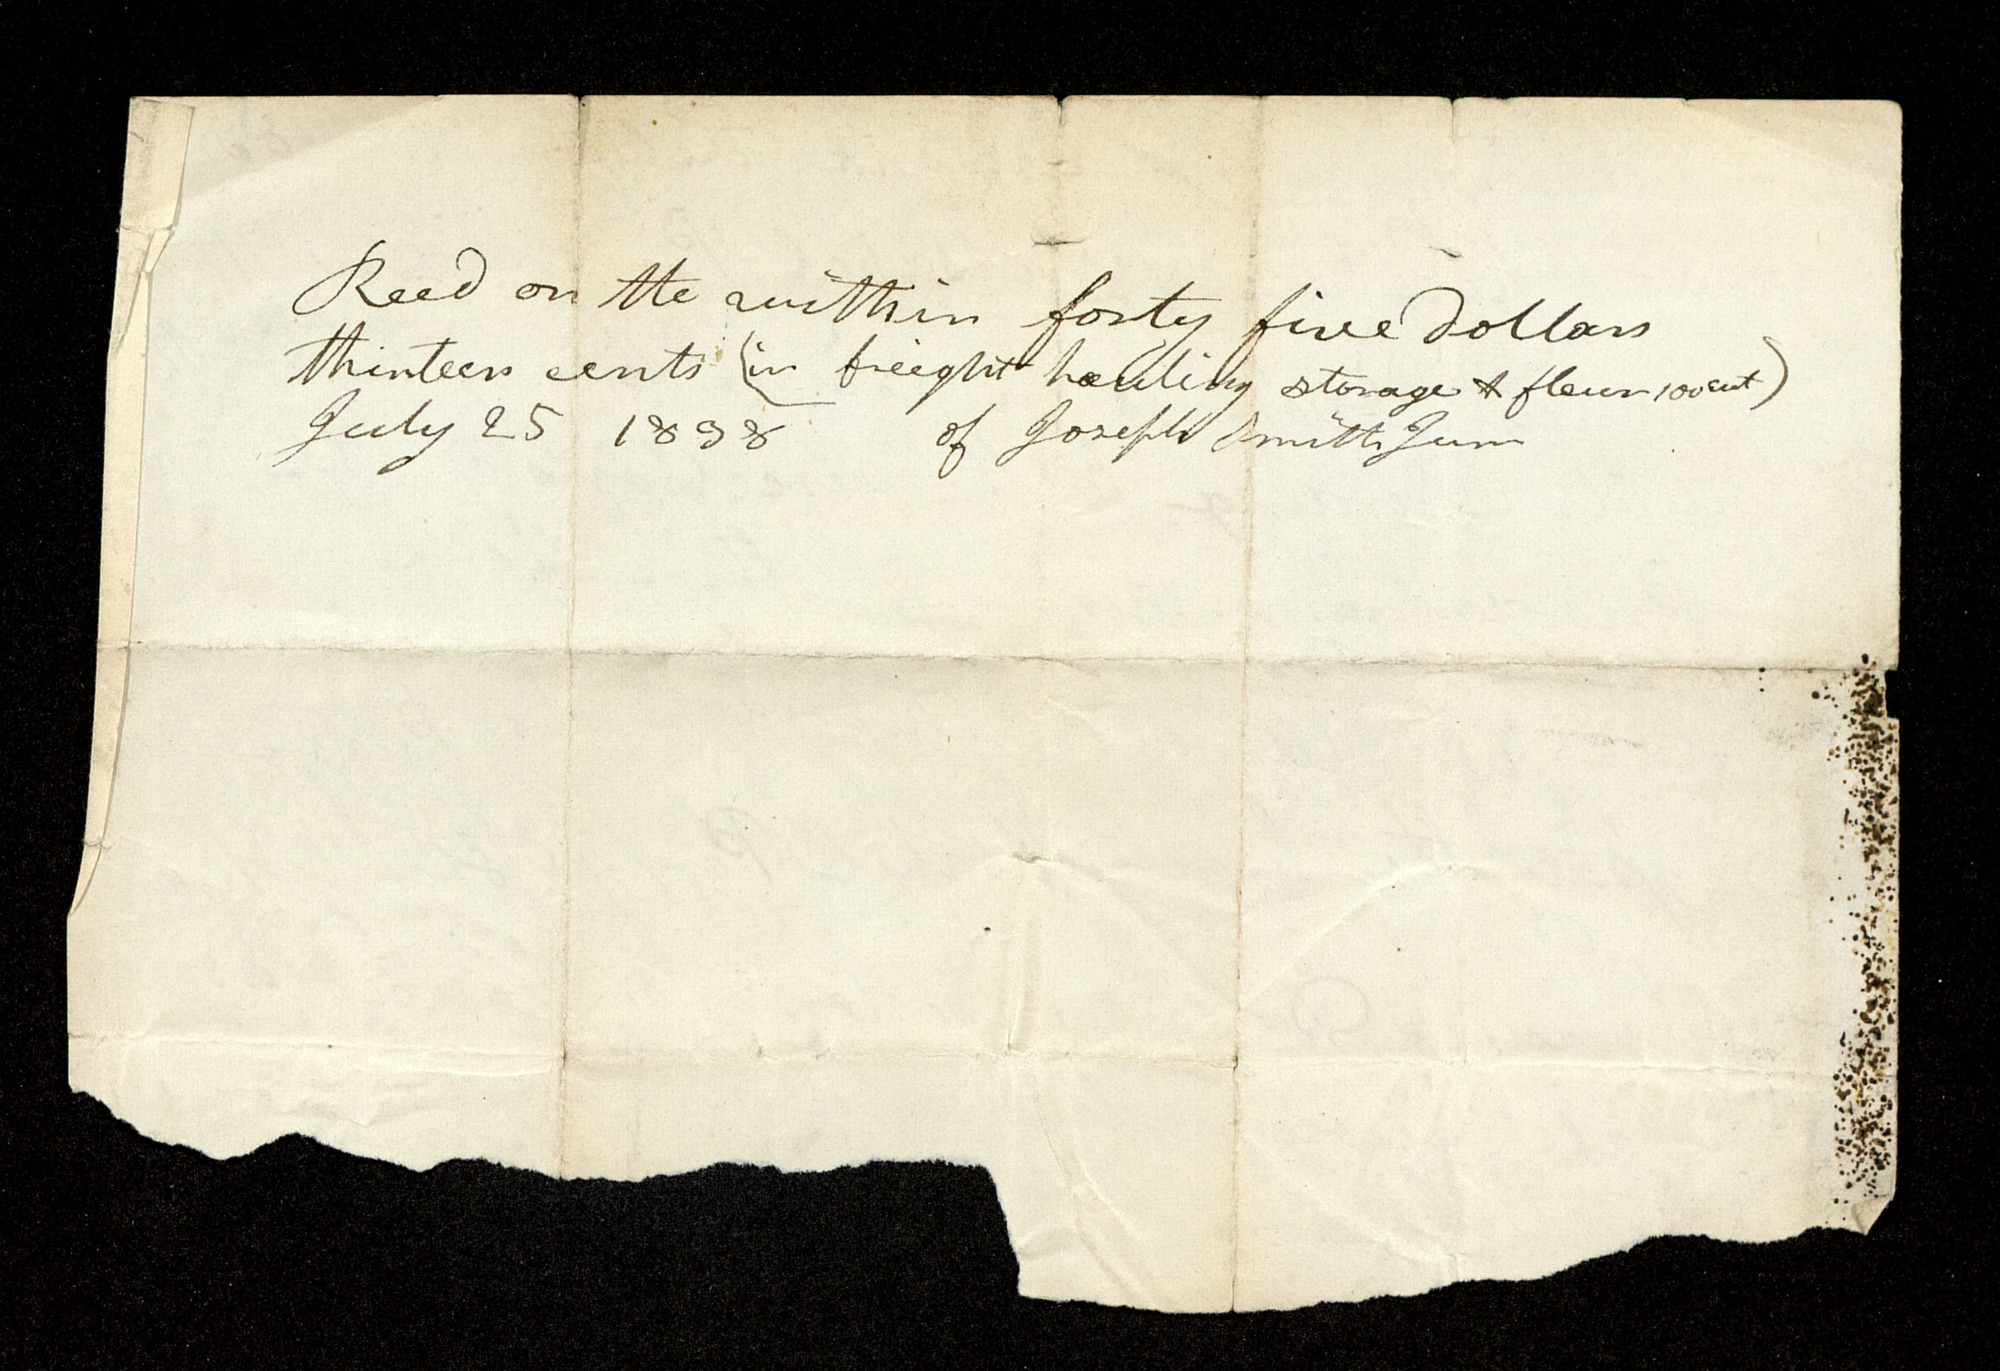 Recd on the within forty five dollars
thirteen cents (in frieght hauling storage & flour 100 cwt)
July 25 1838 of Joseph Smith Jun